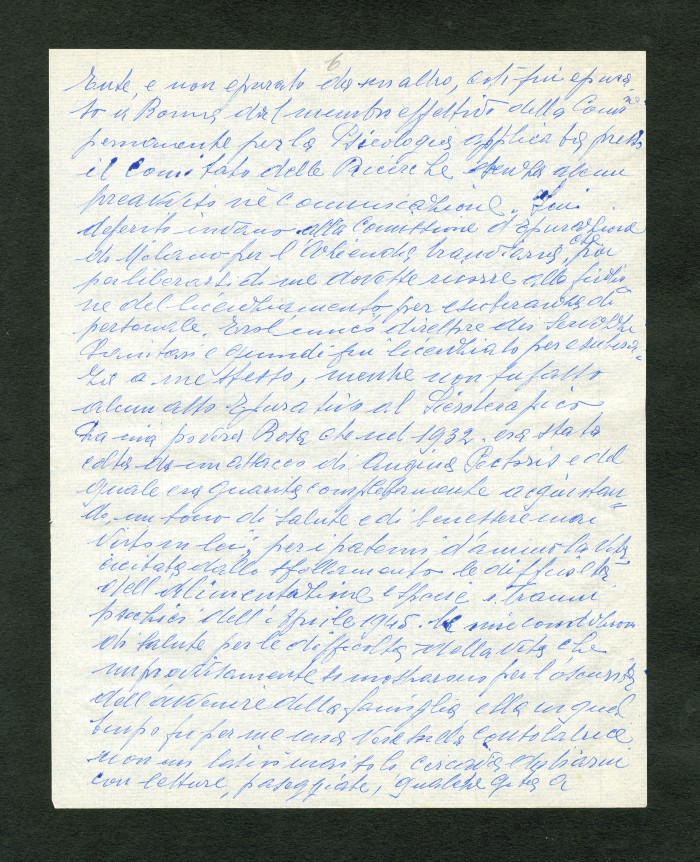 6
Ente, e non epurato da senaltro, così fui epura-
to a Roma dal membro effettivo della Com.ne
permanente per la Psicologia applicata presso
il Comitato delle Ricerche senza alcun
preavviso nè comunicazione. Fui
deferito invano alla Comissione d'epurazione
di Milano per l'Azienda tranviaria, che poi
per liberarsi di me dovette ricorrere alla finzio-
ne del licenziamento per esuberanza di
personale. Ero l'unico direttore dei Servizi
Sanitari e quindi fui licenziato per esuberan-
za a me stesso, mentre non fu fatto
alcun atto Epurativo al
La mia povera Rosa che nel 1932 era stata
colta da un attacco di Angina Pectoris e dal
quale era guarita completamente acquistan-
do un tono di salute e di benessere mai
visto in lei, per i patemi d'animo la vita
dallo sfollamento le difficoltà
dell'alimentazione e i traumi
psichici dell'Aprile 1945. le mie condizioni
di salute per le difficoltà della vita che
improvvisamente si mostrarono per l'oscurità
dell'avvenire della famiglia, ella in quel
tempo fu per me una vera consolatrice
non mi lasciò mai solo cercava
con letture, passeggiate, qualche gita a